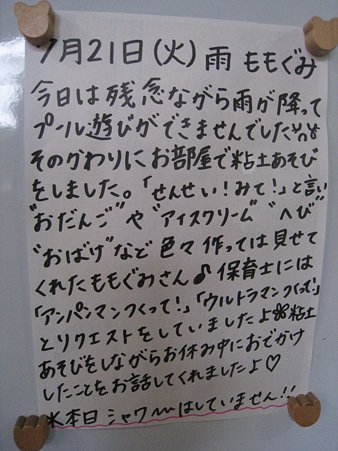 7月21日(火) 雨 ももぐみ
今日は残念ながら雨が降って
プール遊びができませんでした
そのかわりにお部屋で粘土あそび
をしました。「せんせい!みて!」と言い
"おだんご"や"アイスクリーム""へび"
"おばけ"など色々作っては見せて
くれたももぐみさん♪保育士には
「アンパンマンつくって!」「ウルトラマンつくって!」
とリクエストをしていましたよ❀粘土
あそびをしながらお休み中におでかけ
したことをお話してくれましたよ♡
※本日シャワーはしていません!!